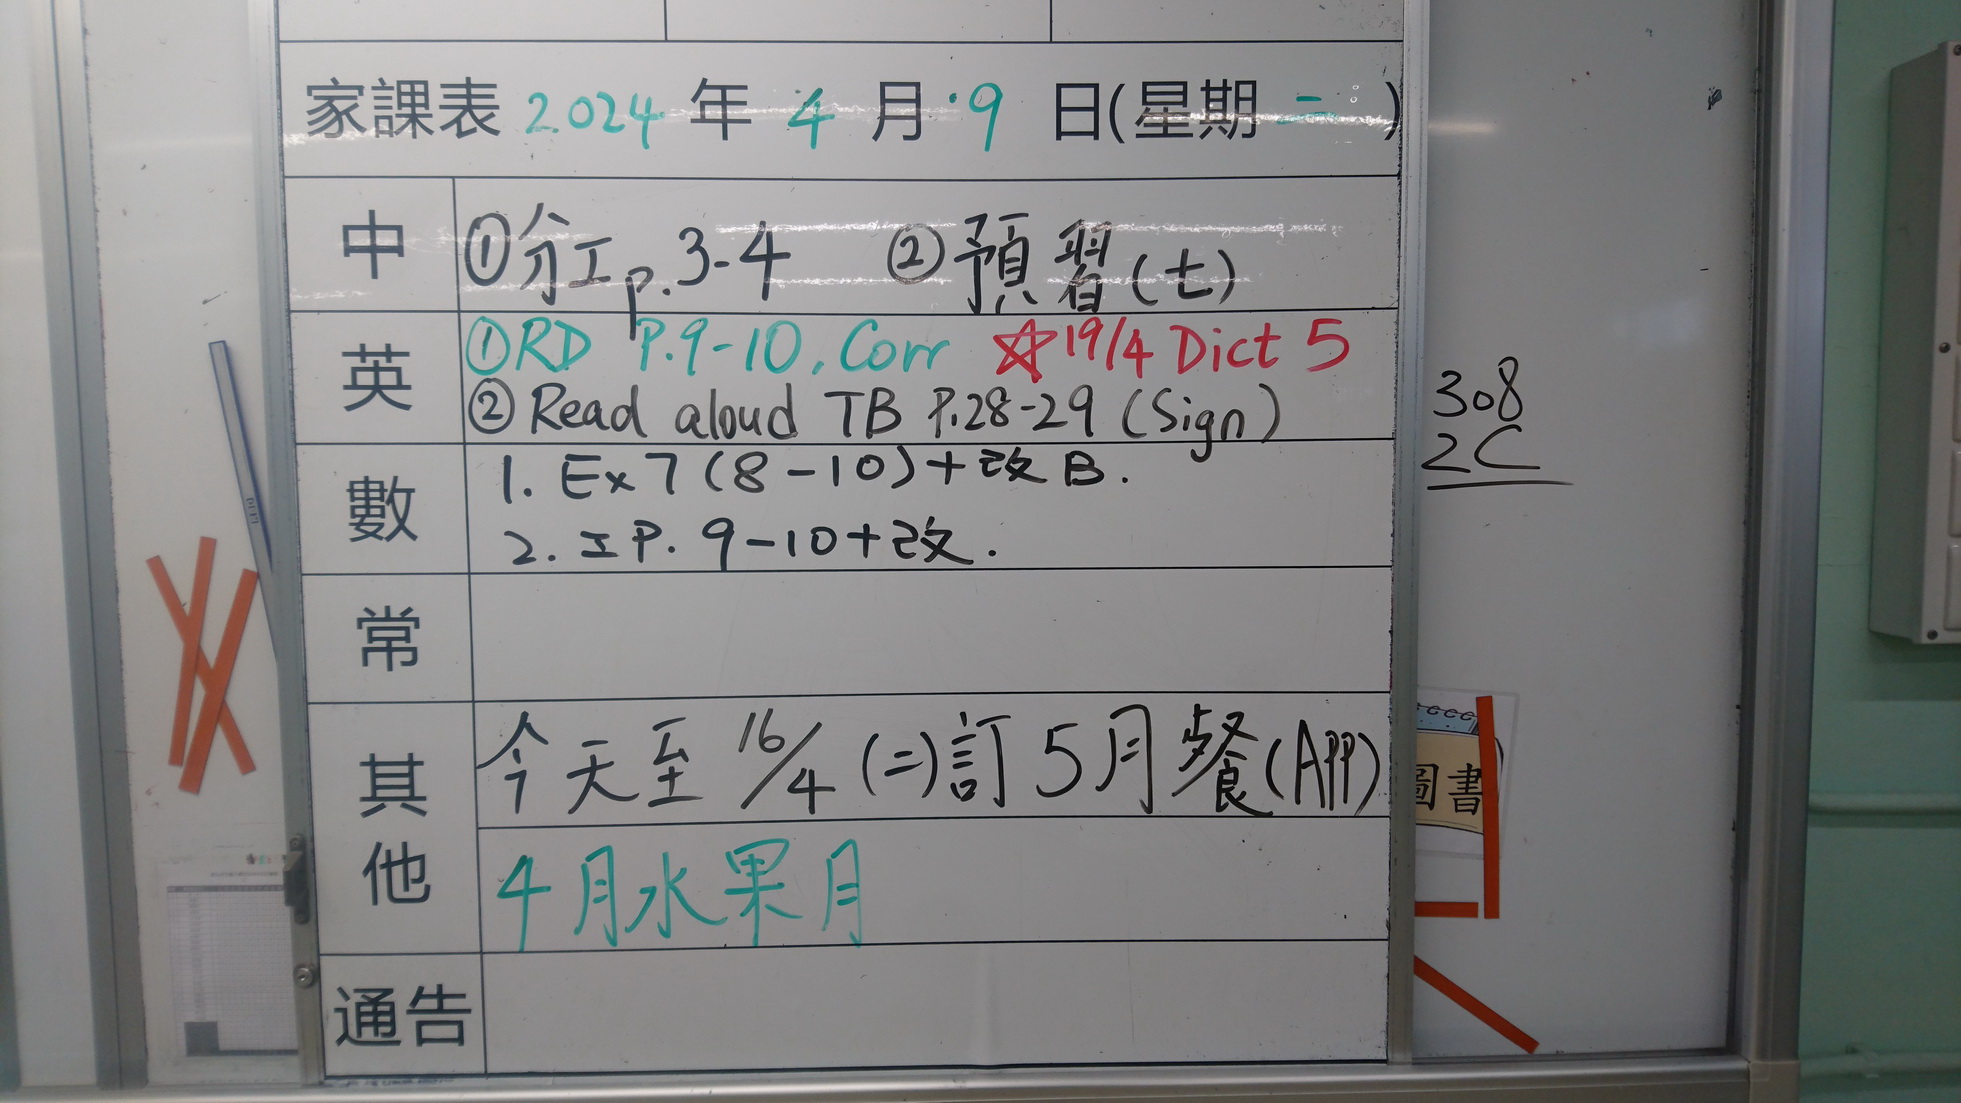 家課表 2024 年 4 月 9 日(星期二)
中 ①分工p.3-4 ②預習(七)
英 ①RD P.9-10, Corr ☆19/4 Dict 5
②Read aloud TB P.28-29 (Sign)
數 1. Ex 7 (8-10)+改B.
2. 工P. 9-10+改.
常
其他 今天至 16/4 (二)訂 5月餐(App)
4月水果月
通告
308
2C
圖書